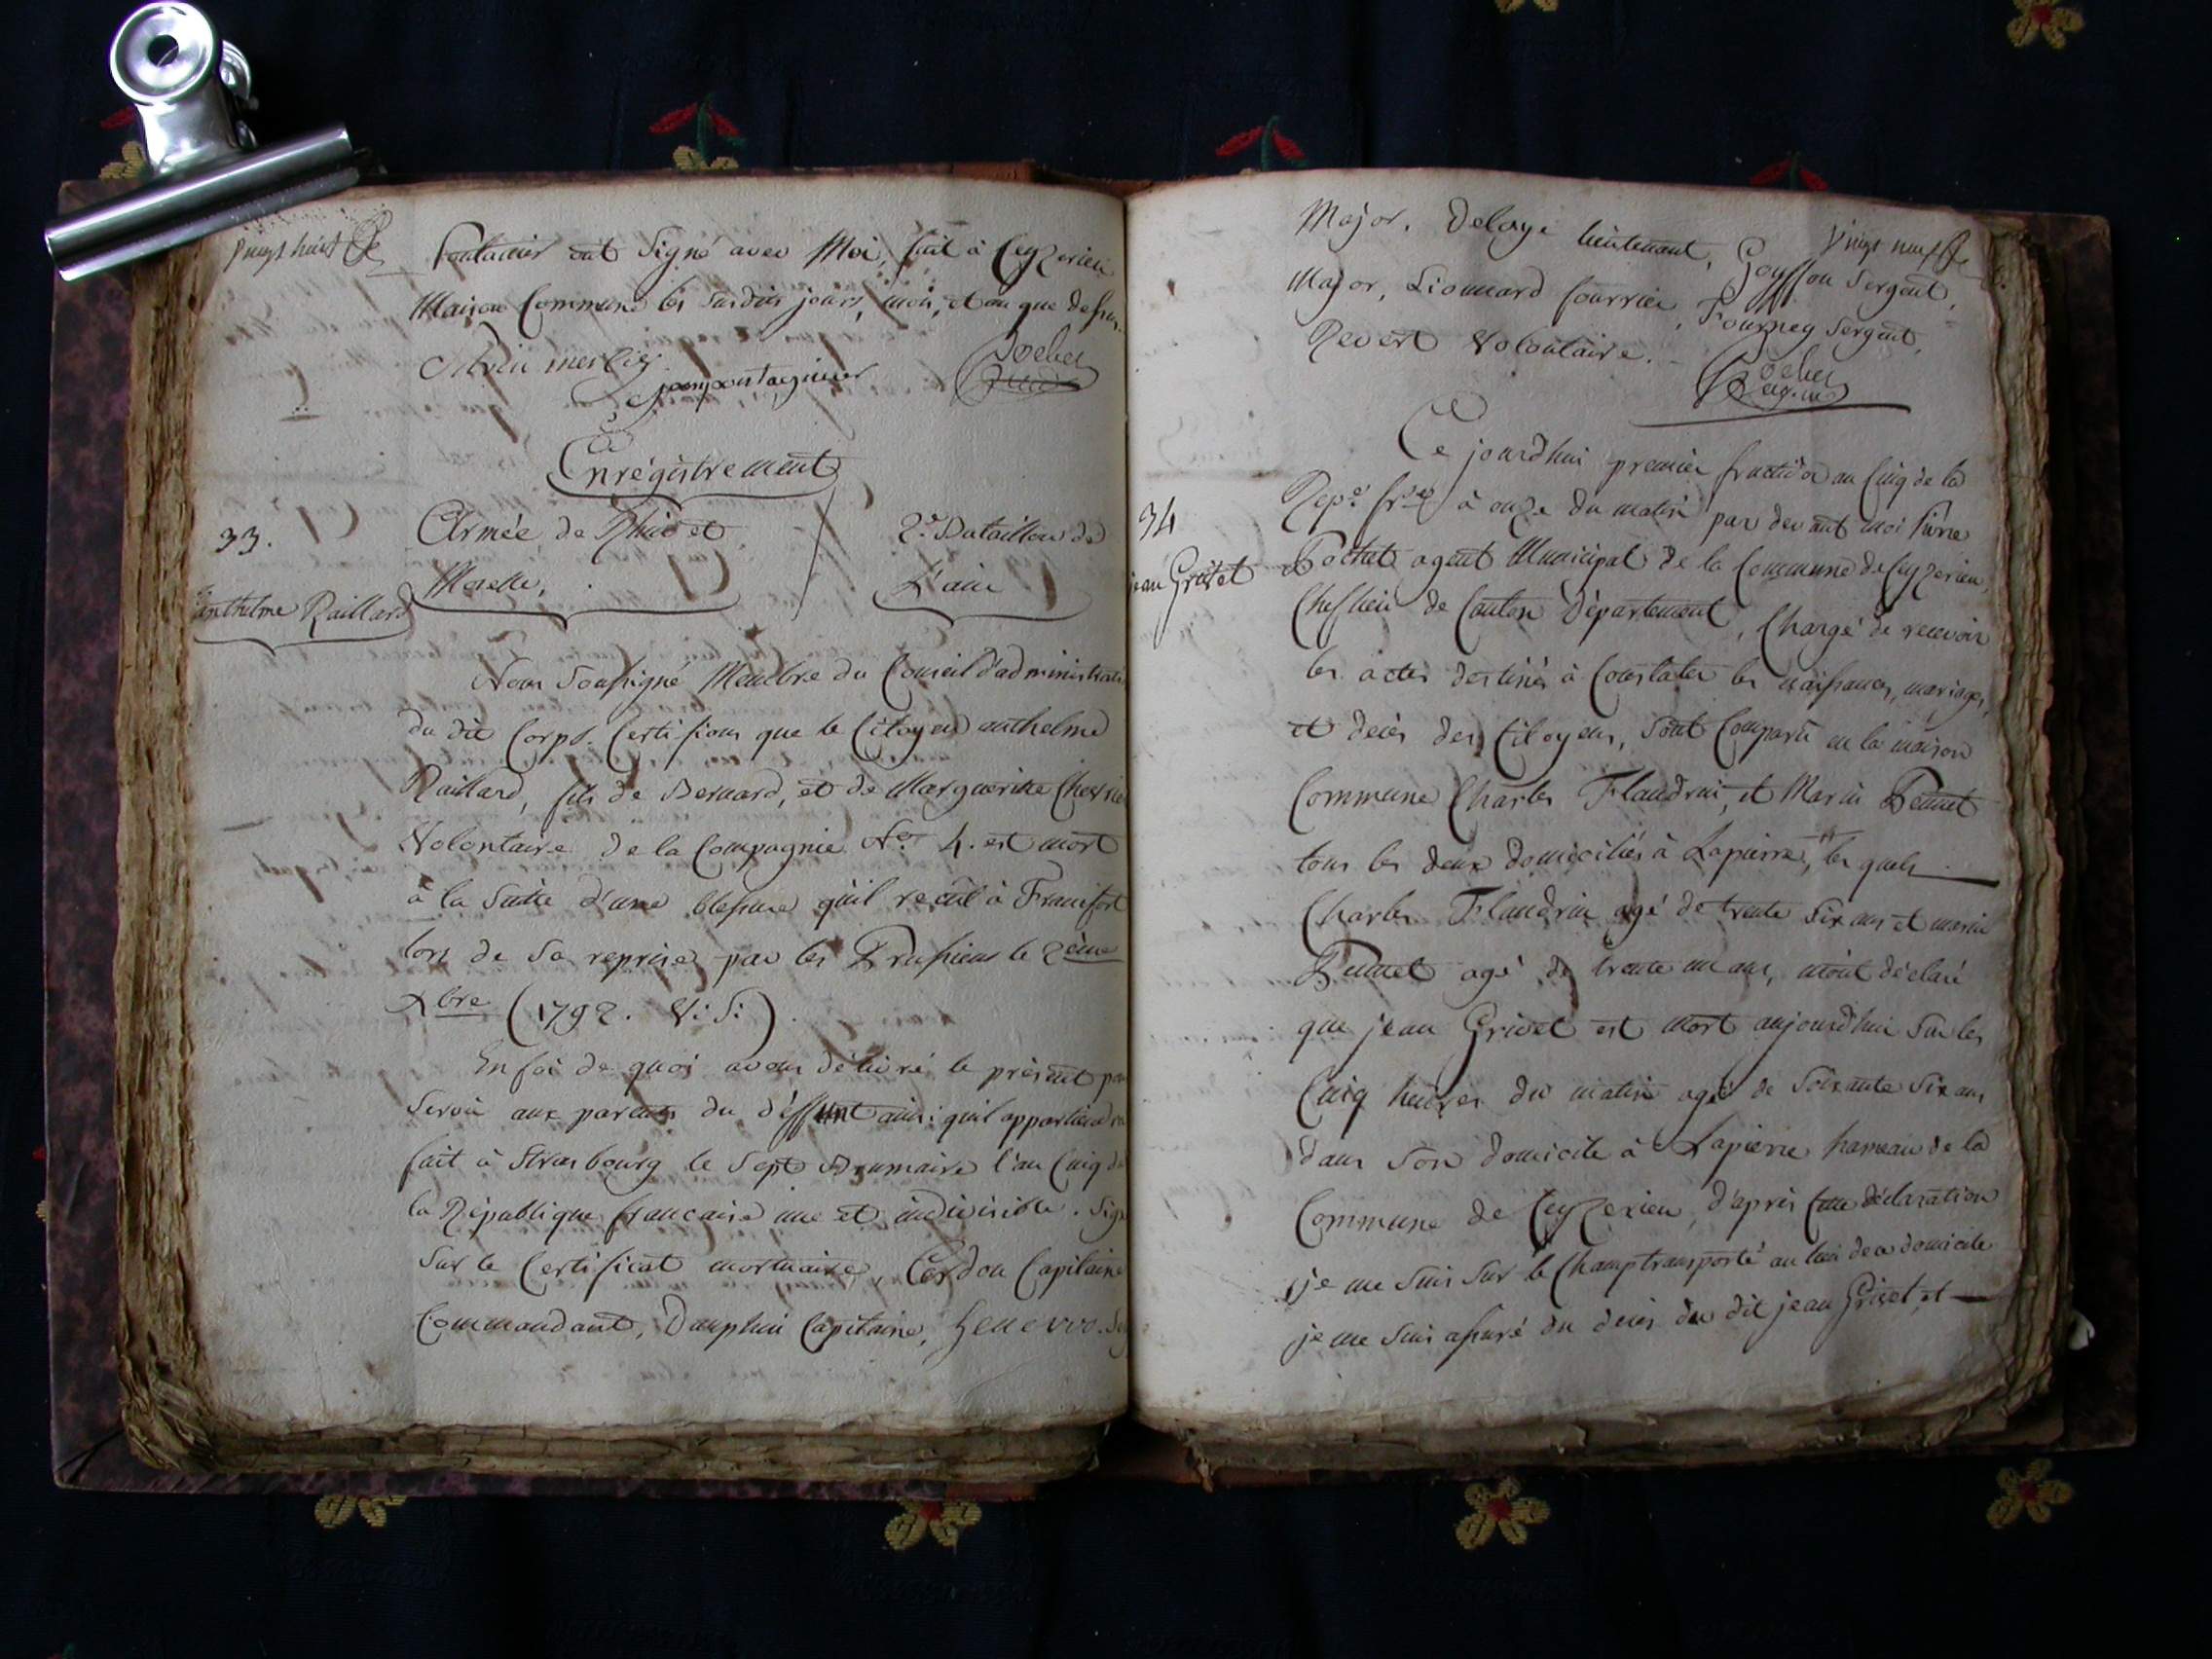 vingt huit
ont signé avec Moi, fait à Ceyzerieu
Maison Commune les susdits jours, mois, et an que dessus.
Enrégistrement
33.
Armée de Rhin et
Moselle,
2e. Bataillon de
L'ain
anthelme Raillard
Nous Soussigné Membre du Conseil d'administrati
du dit Corps. Certifions que le Citoyen anthelme
Raillard, fils de Bernard, et de Marguerite
Volontaire de la Compagnie No. 4. est mort
à la Suite d'une blessure qu'il recut à Francfort
lors de Sa reprise par les Prussiens le 2eme
Xbre (1792. V: S:).
En foi de quoi avons délivré le présent
Servir aux parents du déffunt ainsi qu'il appartiendra
fait à Strasbourg le Sept Brumaire l'an Cinq de
la République francaise une et indivisible. Sig
Sur le Certificat mortuaire, Cardon Capitaine
Commandant, Dauphin Capitaine,
vingt neuf
Major, Delaye lieutenant, Goyffon Sergent,
Major, Lionnard fourrier, Fourney Sergent,
Revert Volontaire.
34
jean Grivet
Ce jourd'hui premier fructidor an Cinq de la
Repe. frse à onze du matin par devant moi Pierre
Bochet agent Municipal de la Commune de Ceyzerieu
Cheflieu de Canton Département, Chargé de recevoir
les actes destinés à Constater les naissances, mariages,
et decès des Citoyens, Sont Comparu en la maison
Commune Charles Flandrin, et Marin Bonnet
tous les deux domiciliés à Lapierre, les quels
Charles Flandrin agé de trente Six ans et marin
Bonnet agé de trente un ans, m'ont déclaré
que jean Grivet est mort aujourd'hui Sur les
Cinq heures du matin agé de Soixante Six ans
dans Son domicile à Lapierre hameau de la
Commune de Ceyzerieu, d'après Cette déclaration
je me Suis Sur le Champ transporté au lieu de ce domicile
je me Suis assuré du decès du dit jean Grivet, et